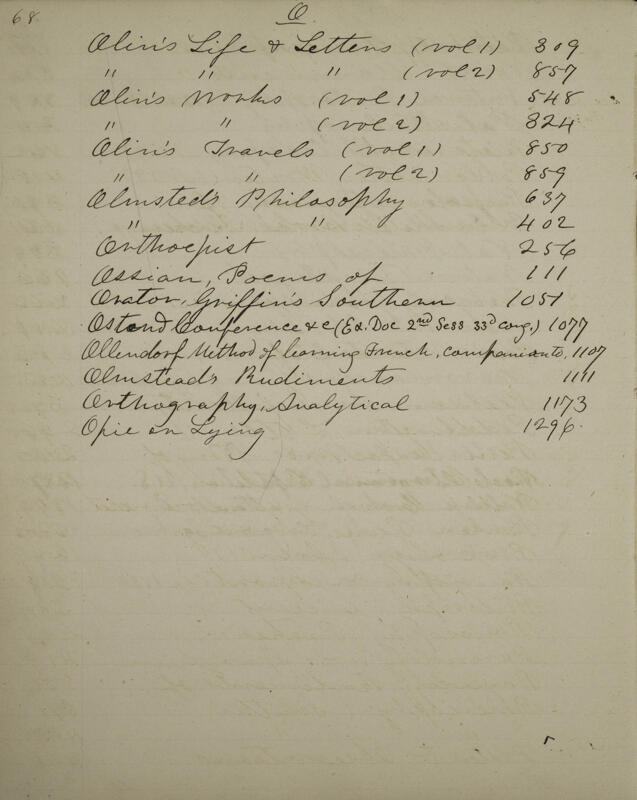 68.
O.
Olin's Life & Letters (vol 1) 309
" " " (vol 2) 857
Olin's Works (vol 1) 548
" " (vol 2) 324
Olin's Travels (vol 1) 850
" " (vol 2) 859
Olmsted's Philosophy 637
" " 402
Orthoepist 256
Ossian, Poems of 111
Orator, Griffin's Southern 1051
Ostend Conference &c (Ex. Doc 2nd Sess 33d Cong.) 1077
Ollendorf Method of learning French, companion to, 1107
Olmstead's Rudiments 1111
Orthography, Analytical 1173
Opie on Lying 1296.